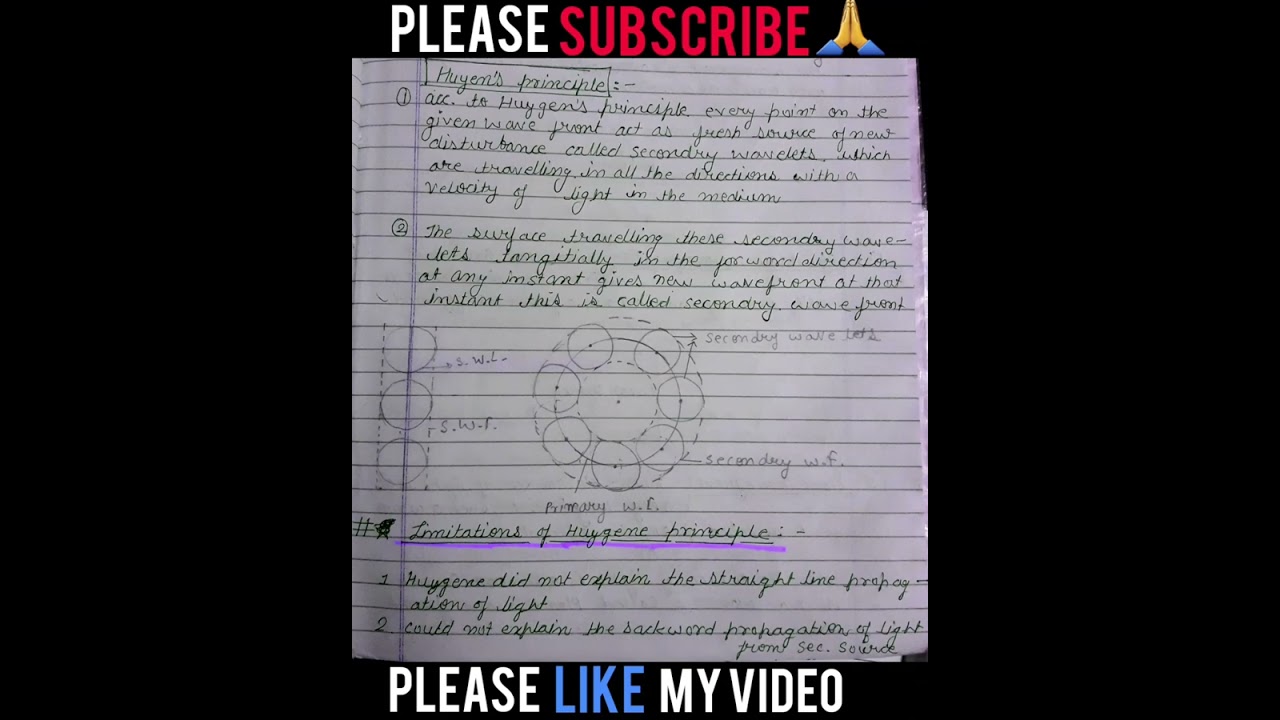 PLEASE SUBSCRIBE
Huyen's principle :-
① acc. to Huygen's principle every point on the
given wave front act as fresh source of new
disturbance called secondry wavelets. which
are travelling in all the directions with a
velocity of light in the medium
② The surface travelling these secondry wave-
lets tangitially in the forword direction
at any instant gives new wavefront at that
instant this is called secondry wave front
secondry wave lets
S.W.L
S.W.f.
secondry w.f.
Primary w.f.
# Limitations of Huygene principle :-
1 Huygene did not explain the straight line propag-
ation of light
2 could not explain the backword propagation of light
from sec. source
PLEASE LIKE MY VIDEO